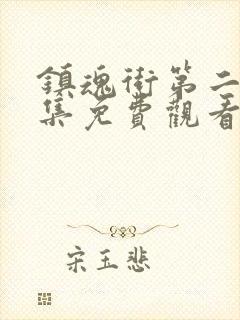 鎮魂街第二
集免費觀看
宋玉悲